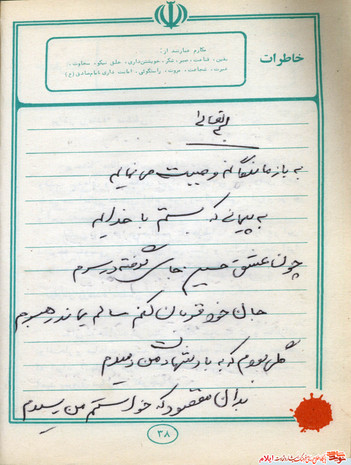 خاطرات
مکارم عبارتند از:
یقین، قناعت، صبر، شکر، خویشتن‌داری، خلق نیکو، سخاوت،
غیرت، شجاعت، مروت، راستگوئی، امانت داری (امام صادق (ع)
بسم تعالی
به بازماندگانم وصیت می نمایم
به پیمانی که بستم با خدایم
چون عشق حسین جای گرفته در سرم
جان خود قربان کنم سالم بماند رهبرم
گلی بودم که به باد شهادت من دمیدم
بدان مقصود که خواستم من رسیدم
۳۸